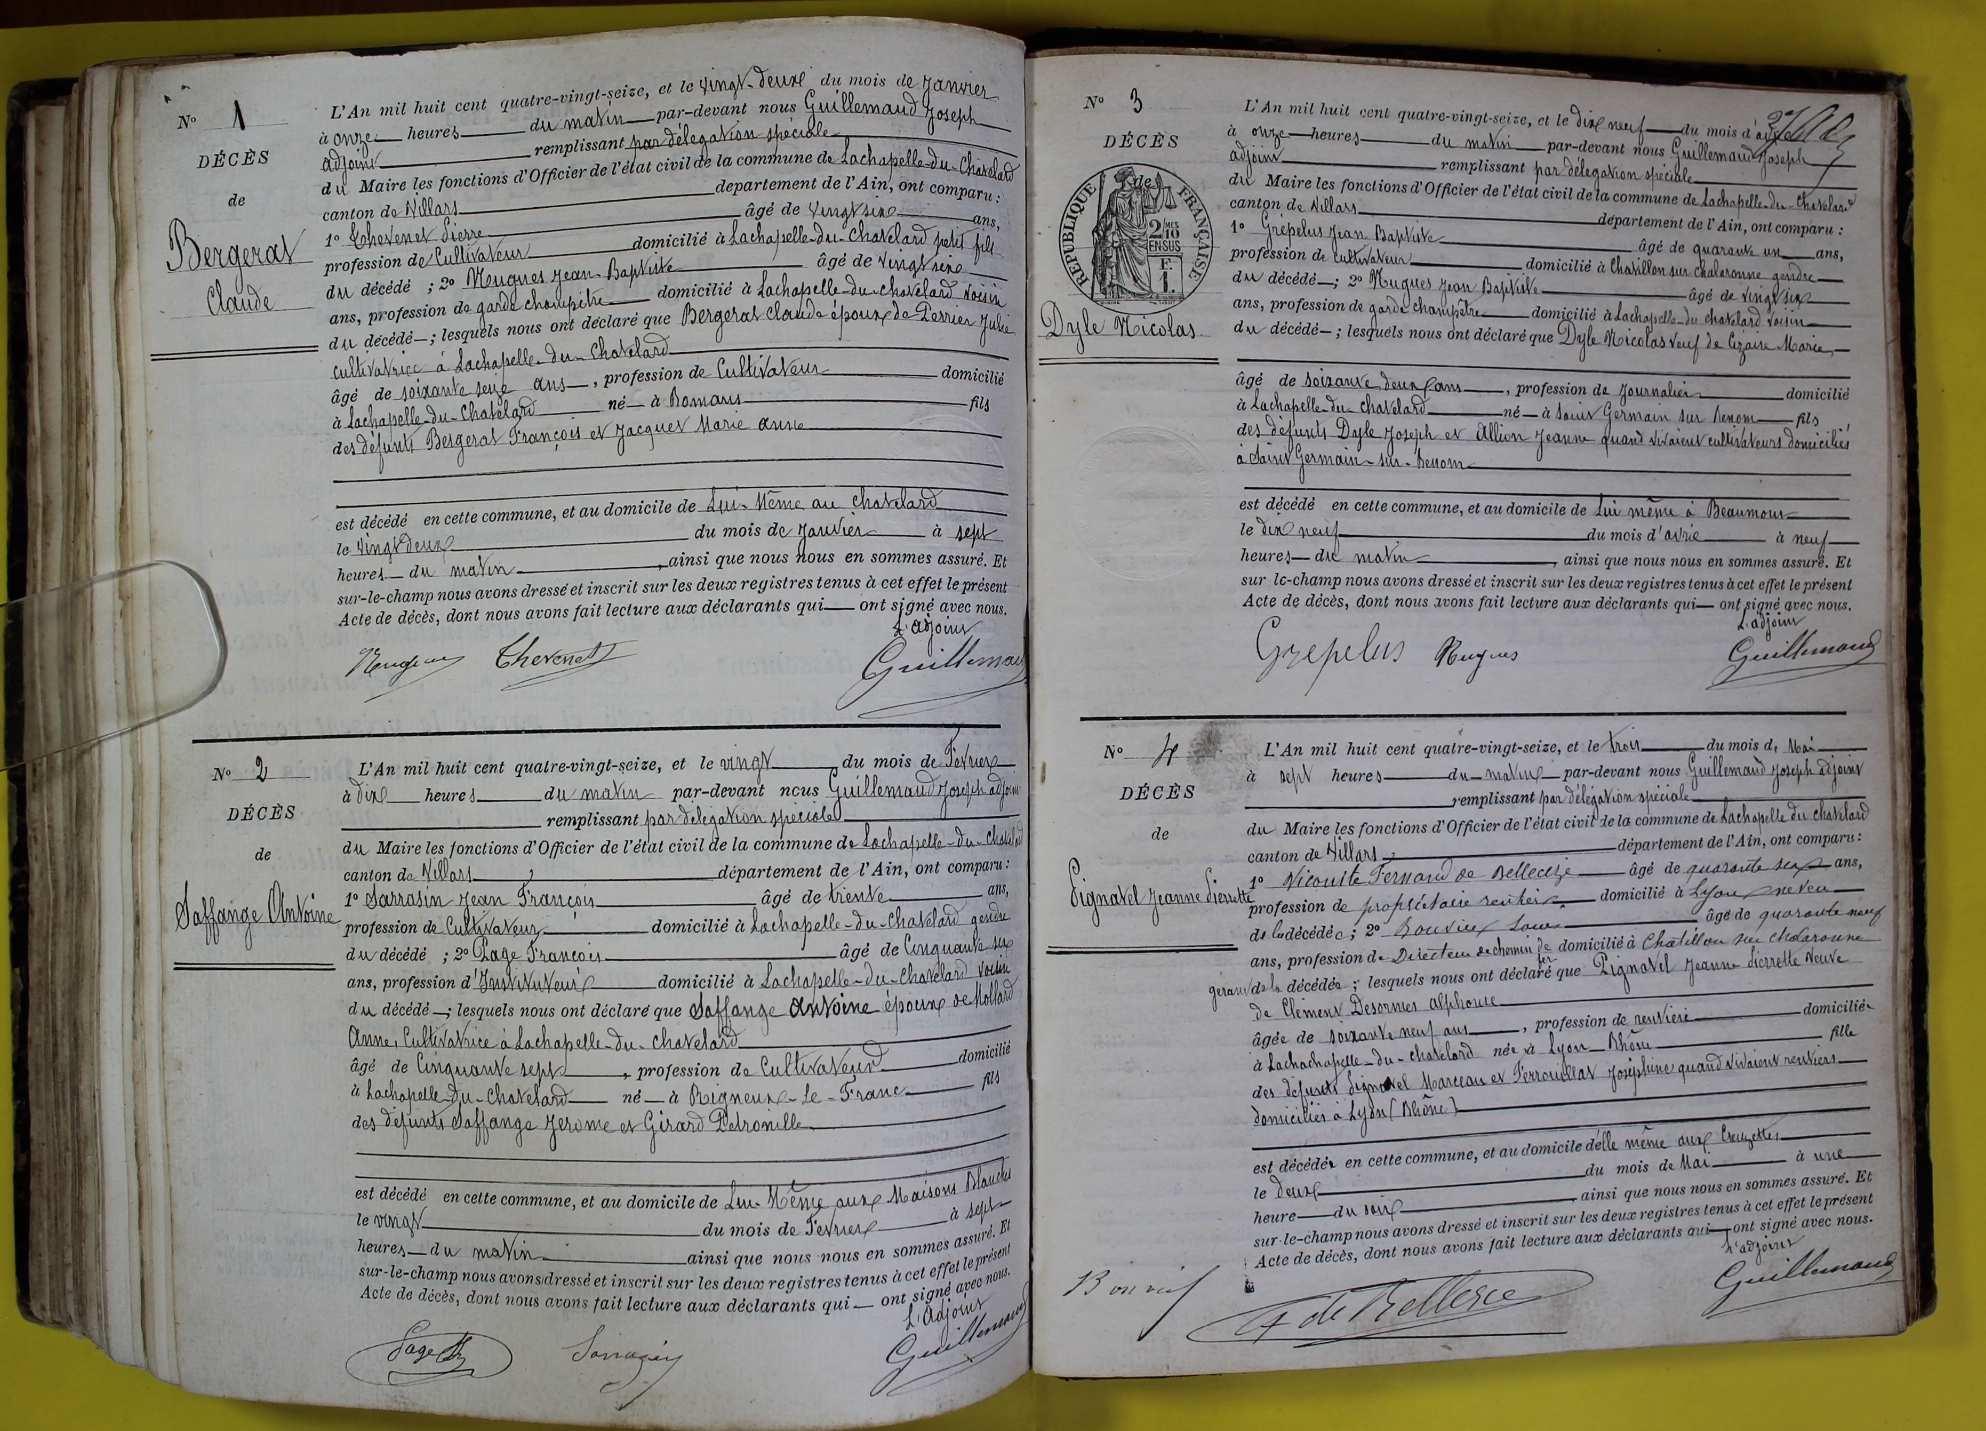 N° 1
DÉCÈS
de
Bergerat
Claude
L'An mil huit cent quatre-vingt-seize, et le vingt-deux du mois de Janvier
à onze heures du matin par-devant nous Guillemaud Joseph
adjoint remplissant par délégation spéciale
du Maire les fonctions d'Officier de l'état civil de la commune de Lachapelle-du-Chatelard
canton de Villars département de l'Ain, ont comparu :
1° Thevenet Pierre âgé de vingt six ans,
profession de Cultivateur domicilié à Lachapelle-du-Chatelard petit fils
du décédé ; 2° Hugues Jean-Baptiste âgé de vingt six
ans, profession de garde champêtre domicilié à Lachapelle-du-chatelard voisin
du décédé ; lesquels nous ont déclaré que Bergerat Claude époux de Perrier Julie
cultivatrice à Lachapelle-du-Chatelard
âgé de soixante seize ans, profession de Cultivateur domicilié
à Lachapelle-du-Chatelard né à Romans fils
des défunts Bergerat François et Jacquet Marie anne
est décédé en cette commune, et au domicile de Lui-Même au chatelard
le vingt deux du mois de Janvier à sept
heures du matin, ainsi que nous nous en sommes assuré. Et
sur-le-champ nous avons dressé et inscrit sur les deux registres tenus à cet effet le présent
Acte de décès, dont nous avons fait lecture aux déclarants qui ont signé avec nous.
L'adjoint
Hugues Thevenet Guillemaud
N° 2
DÉCÈS
de
Saffange Antoine
L'An mil huit cent quatre-vingt-seize, et le vingt du mois de Fevrier
à dix heures du matin par-devant nous Guillemaud Joseph adjoint
remplissant par délégation spéciale
du Maire les fonctions d'Officier de l'état civil de la commune de Lachapelle-du-Chatelard
canton de Villars département de l'Ain, ont comparu :
1° Sarrasin Jean François âgé de trente ans,
profession de Cultivateur domicilié à Lachapelle-du-Chatelard gendre
du décédé ; 2° Page François âgé de Cinquante six
ans, profession d'Instituteur domicilié à Lachapelle-du-Chatelard voisin
du décédé ; lesquels nous ont déclaré que Saffange Antoine époux de Mollard
Anne, Cultivatrice à Lachapelle-du-chatelard
âgé de Cinquante sept, profession de Cultivateur domicilié
à Lachapelle-du-Chatelard né à Rigneux-le-Franc fils
des défunts Saffange Jerome et Girard Pétronille
est décédé en cette commune, et au domicile de Lui-Même aux Maisons Blanches
le vingt du mois de Fevrier à sept
heures du matin ainsi que nous nous en sommes assuré. Et
sur-le-champ nous avons dressé et inscrit sur les deux registres tenus à cet effet le présent
Acte de décès, dont nous avons fait lecture aux déclarants qui ont signé avec nous.
L'Adjoint
Page Sarrasin Guillemaud
N° 3
DÉCÈS
de
RÉPUBLIQUE FRANÇAISE
2/10 MES
EN SUS
F.
1.
Dyle Nicolas
L'An mil huit cent quatre-vingt-seize, et le dix neuf du mois d'avril
à onze heures du matin par-devant nous Guillemaud Joseph
adjoint remplissant par délégation spéciale
du Maire les fonctions d'Officier de l'état civil de la commune de Lachapelle-du-Chatelard
canton de Villars département de l'Ain, ont comparu :
1° Grépelus Jean Baptiste âgé de quarante un ans,
profession de cultivateur domicilié à Chatillon sur chalaronne gendre
du décédé ; 2° Hugues Jean Baptiste âgé de vingt six
ans, profession de garde champêtre domicilié à Lachapelle-du-chatelard voisin
du décédé ; lesquels nous ont déclaré que Dyle Nicolas veuf de Cezaire Marie
âgé de soixante deux ans, profession de Journalier domicilié
à Lachapelle-du-chatelard né à Saint Germain sur Renom fils
des défunts Dyle Joseph et Allion Jeanne quand vivaient cultivateurs domiciliés
à Saint Germain-sur-Renom
est décédé en cette commune, et au domicile de Lui même à Beaumont
le dix neuf du mois d'avril à neuf
heures du matin, ainsi que nous nous en sommes assuré. Et
sur le-champ nous avons dressé et inscrit sur les deux registres tenus à cet effet le présent
Acte de décès, dont nous avons fait lecture aux déclarants qui ont signé avec nous.
L'adjoint
Grepelus Hugues Guillemaud
N° 4
DÉCÈS
de
Pignatel Jeanne Pierrette
L'An mil huit cent quatre-vingt-seize, et le trois du mois de Mai
à sept heures du matin par-devant nous Guillemaud Joseph adjoint
remplissant par délégation spéciale
du Maire les fonctions d'Officier de l'état civil de la commune de Lachapelle du chatelard
canton de Villars, département de l'Ain, ont comparu :
1° Vicomte Fernand de Bellecize âgé de quarante ans,
profession de propriétaire rentier domicilié à Lyon neveu
de la décédée ; 2° Bouvier Louis âgé de quarante neuf
ans, profession de Directeur de chemin de fer domicilié à Chatillon sur Chalaronne
gérant de la décédée ; lesquels nous ont déclaré que Pignatel Jeanne Pierrette Veuve
de Clément Desormes alphonse
âgée de soixante neuf ans, profession de rentière domiciliée
à Lachachapelle-du-chatelard née à Lyon Rhône fille
des défunts Pignatel Marceau et Ferrouillat Joséphine quand vivaient rentiers
domiciliés à Lyon (Rhône)
est décédée en cette commune, et au domicile d'elle même aux Creuzettes
le deux du mois de Mai à une
heure du soir, ainsi que nous nous en sommes assuré. Et
sur-le-champ nous avons dressé et inscrit sur les deux registres tenus à cet effet le présent
Acte de décès, dont nous avons fait lecture aux déclarants qui ont signé avec nous.
L'adjoint
F de Bellecize Guillemaud